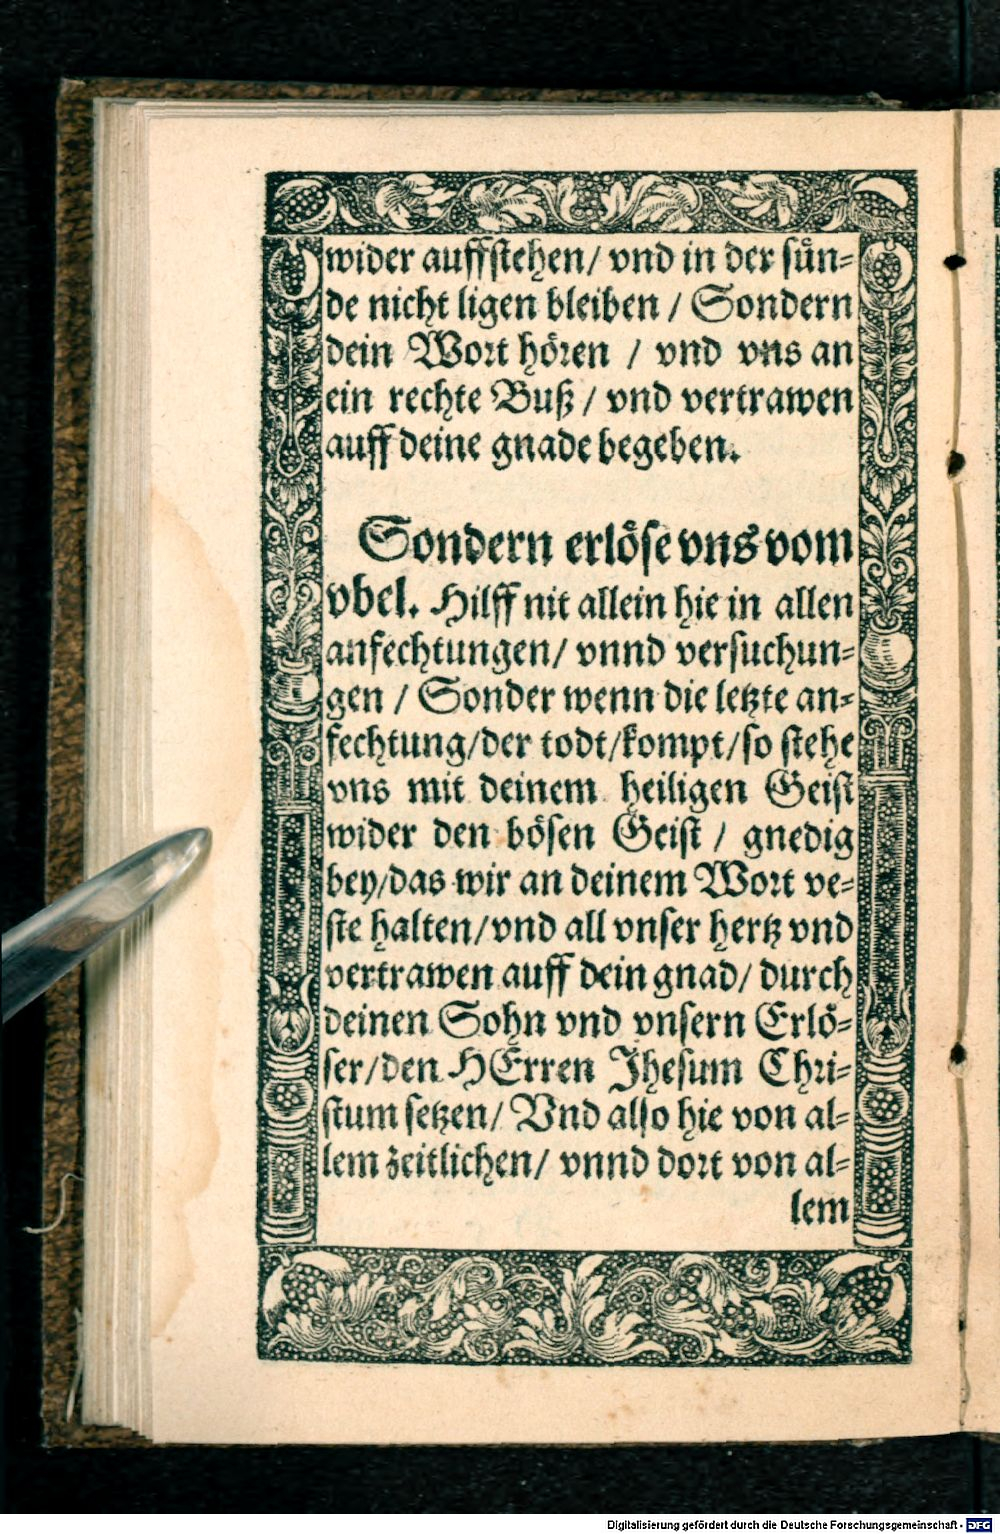 wider auffstehen/ vnd in der sün-
de nicht ligen bleiben / Sondern
dein Wort hören / vnd vns an
ein rechte Buß / vnd vertrawen
auff deine gnade begeben.
Sondern erlöse vns vom
vbel. Hilff nit allein hie in allen
anfechtungen/ vnnd versuchun-
gen / Sonder wenn die letzte an-
fechtung/der todt/kompt/so stehe
vns mit deinem heiligen Geist
wider den bösen Geist / gnedig
bey/das wir an deinem Wort ve-
ste halten/vnd all vnser hertz vnd
vertrawen auff dein gnad/ durch
deinen Sohn vnd vnsern Erlö-
ser/den HErren Jhesum Chri-
stum setzen/ Vnd also hie von al-
lem zeitlichen/ vnnd dort von al-
lem
Digitalisierung gefördert durch die Deutsche Forschungsgemeinschaft - DFG